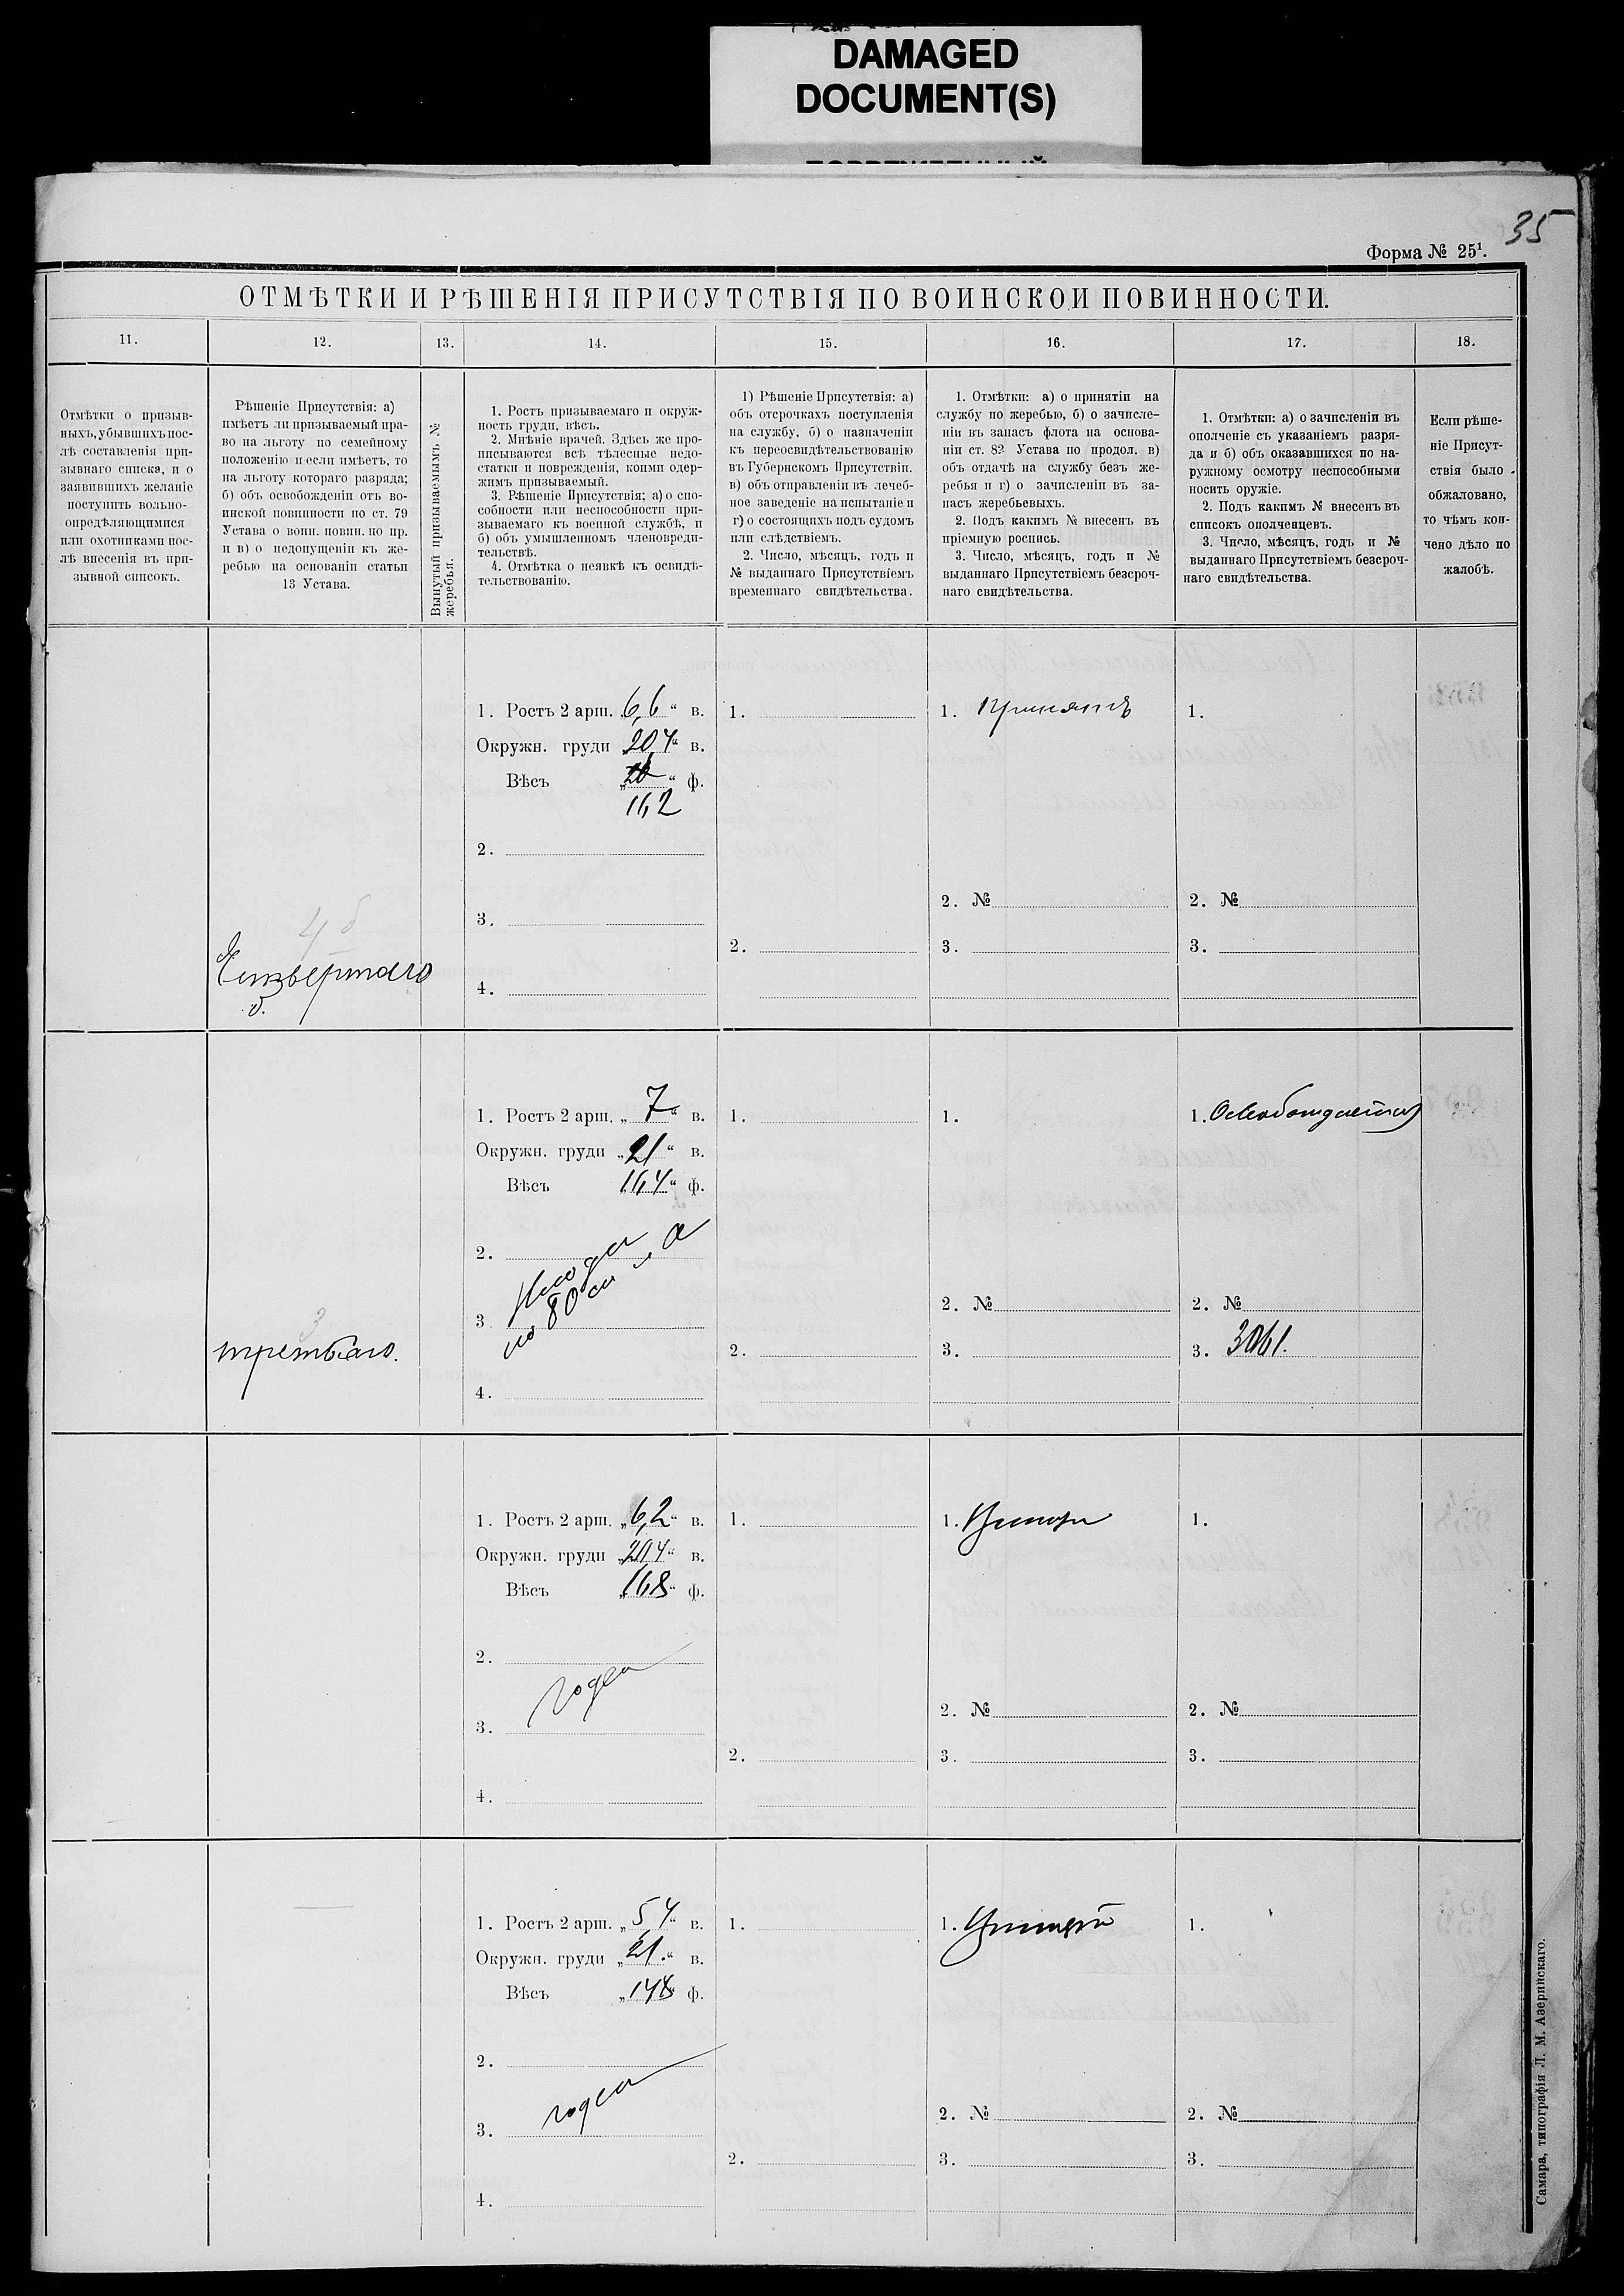 DAMAGED
DOCUMENT(S)
35
Форма № 25¹.
ОТМѢТКИ И РѢШЕНІЯ ПРИСУТСТВІЯ ПО ВОИНСКОИ ПОВИННОСТИ.
11. 12. 13. 14. 15. 16. 17. 18.
Отмѣтки о призыв-
ныхъ, убывшихъ пос-
лѣ составленія при-
зывнаго списка, и о
заявившихъ желаніе
поступить вольно-
опредѣляющимися
или охотниками пос-
лѣ внесенія въ при-
зывной списокъ.
Рѣшеніе Присутствія: а)
имѣетъ ли призываемый пра-
во на льготу по семейному
положенію и если имѣетъ, то
на льготу котораго разряда;
б) объ освобожденіи отъ во-
инской повинности по ст. 79
Устава о воин. повин. по пр.
и в) о недопущеніи къ же-
ребью на основаніи статьи
13 Устава.
Вынутый призываемымъ №
жеребья.
1. Ростъ призываемаго и окруж-
ность груди, вѣсъ.
2. Мнѣніе врачей. Здѣсь же про-
писываются всѣ тѣлесные недо-
статки и поврежденія, коими одер-
жимъ призываемый.
3. Рѣшеніе Присутствія; а) о спо-
собности или неспособности при-
зываемаго къ военной службѣ, и
б) объ умышленномъ членовреди-
тельствѣ.
4. Отмѣтка о неявкѣ къ освидѣ-
тельствованію.
1) Рѣшеніе Присутствія: а)
объ отсрочкахъ поступленія
на службу, б) о назначеніи
къ переосвидѣтельствованію
въ Губернскомъ Присутствіи.
в) объ отправленіи въ лечеб-
ное заведеніе на испытаніе и
г) о состоящихъ подъ судомъ
или слѣдствіемъ.
2. Число, мѣсяцъ, годъ и
№ выданнаго Присутствіемъ
временнаго свидѣтельства.
1. Отмѣтки: а) о принятіи на
службу по жеребью, б) о зачисле-
ніи въ запасъ флота на основа-
ніи ст. 82 Устава по продол. в)
объ отдачѣ на службу безъ же-
ребья и г) о зачисленіи въ за-
пасъ жеребьевыхъ.
2. Подъ какимъ № внесенъ въ
пріемную роспись.
3. Число, мѣсяцъ, годъ и №
выданнаго Присутствіемъ безсроч-
наго свидѣтельства.
1. Отмѣтки: а) о зачисленіи въ
ополченіе съ указаніемъ разря-
да и б) объ оказавшихся по на-
ружному осмотру неспособными
носить оружіе.
2. Подъ какимъ № внесенъ въ
списокъ ополченцевъ.
3. Число, мѣсяцъ, годъ и №
выданнаго Присутствіемъ безсроч-
наго свидѣтельства.
Если рѣше-
ніе Присут-
ствія было
обжаловано,
то чѣмъ кон-
чено дѣло по
жалобѣ.
1. Ростъ 2 арш. „6,6“ в. 1. 1. Принятъ 1.
Окружн. груди „20,4“ в.
Вѣсъ „“ ф.
162
2.
2. № 2. №
4 б
3.
2. 3. 3.
Четвертаго
б.
4.
1. Ростъ 2 арш. „7“ в. 1. 1. 1. Освобождается
Окружн. груди „21“ в.
Вѣсъ „164“ ф.
2.
2. № 2. №
3
3
третьяго.
2. 3. 3. 3061.
4.
1. Ростъ 2 арш. „6,2“ в. 1. 1. 1.
Окружн. груди „20,4“ в.
Вѣсъ „168“ ф.
2.
годен
2. № 2. №
3.
2. 3. 3.
4.
1. Ростъ 2 арш. „5,4“ в. 1. 1. 1.
Окружн. груди „21.“ в.
Вѣсъ „148“ ф.
2.
годен
2. № 2. №
3.
2. 3. 3.
4.
Самара, типографія Л. М. Азеринскаго.